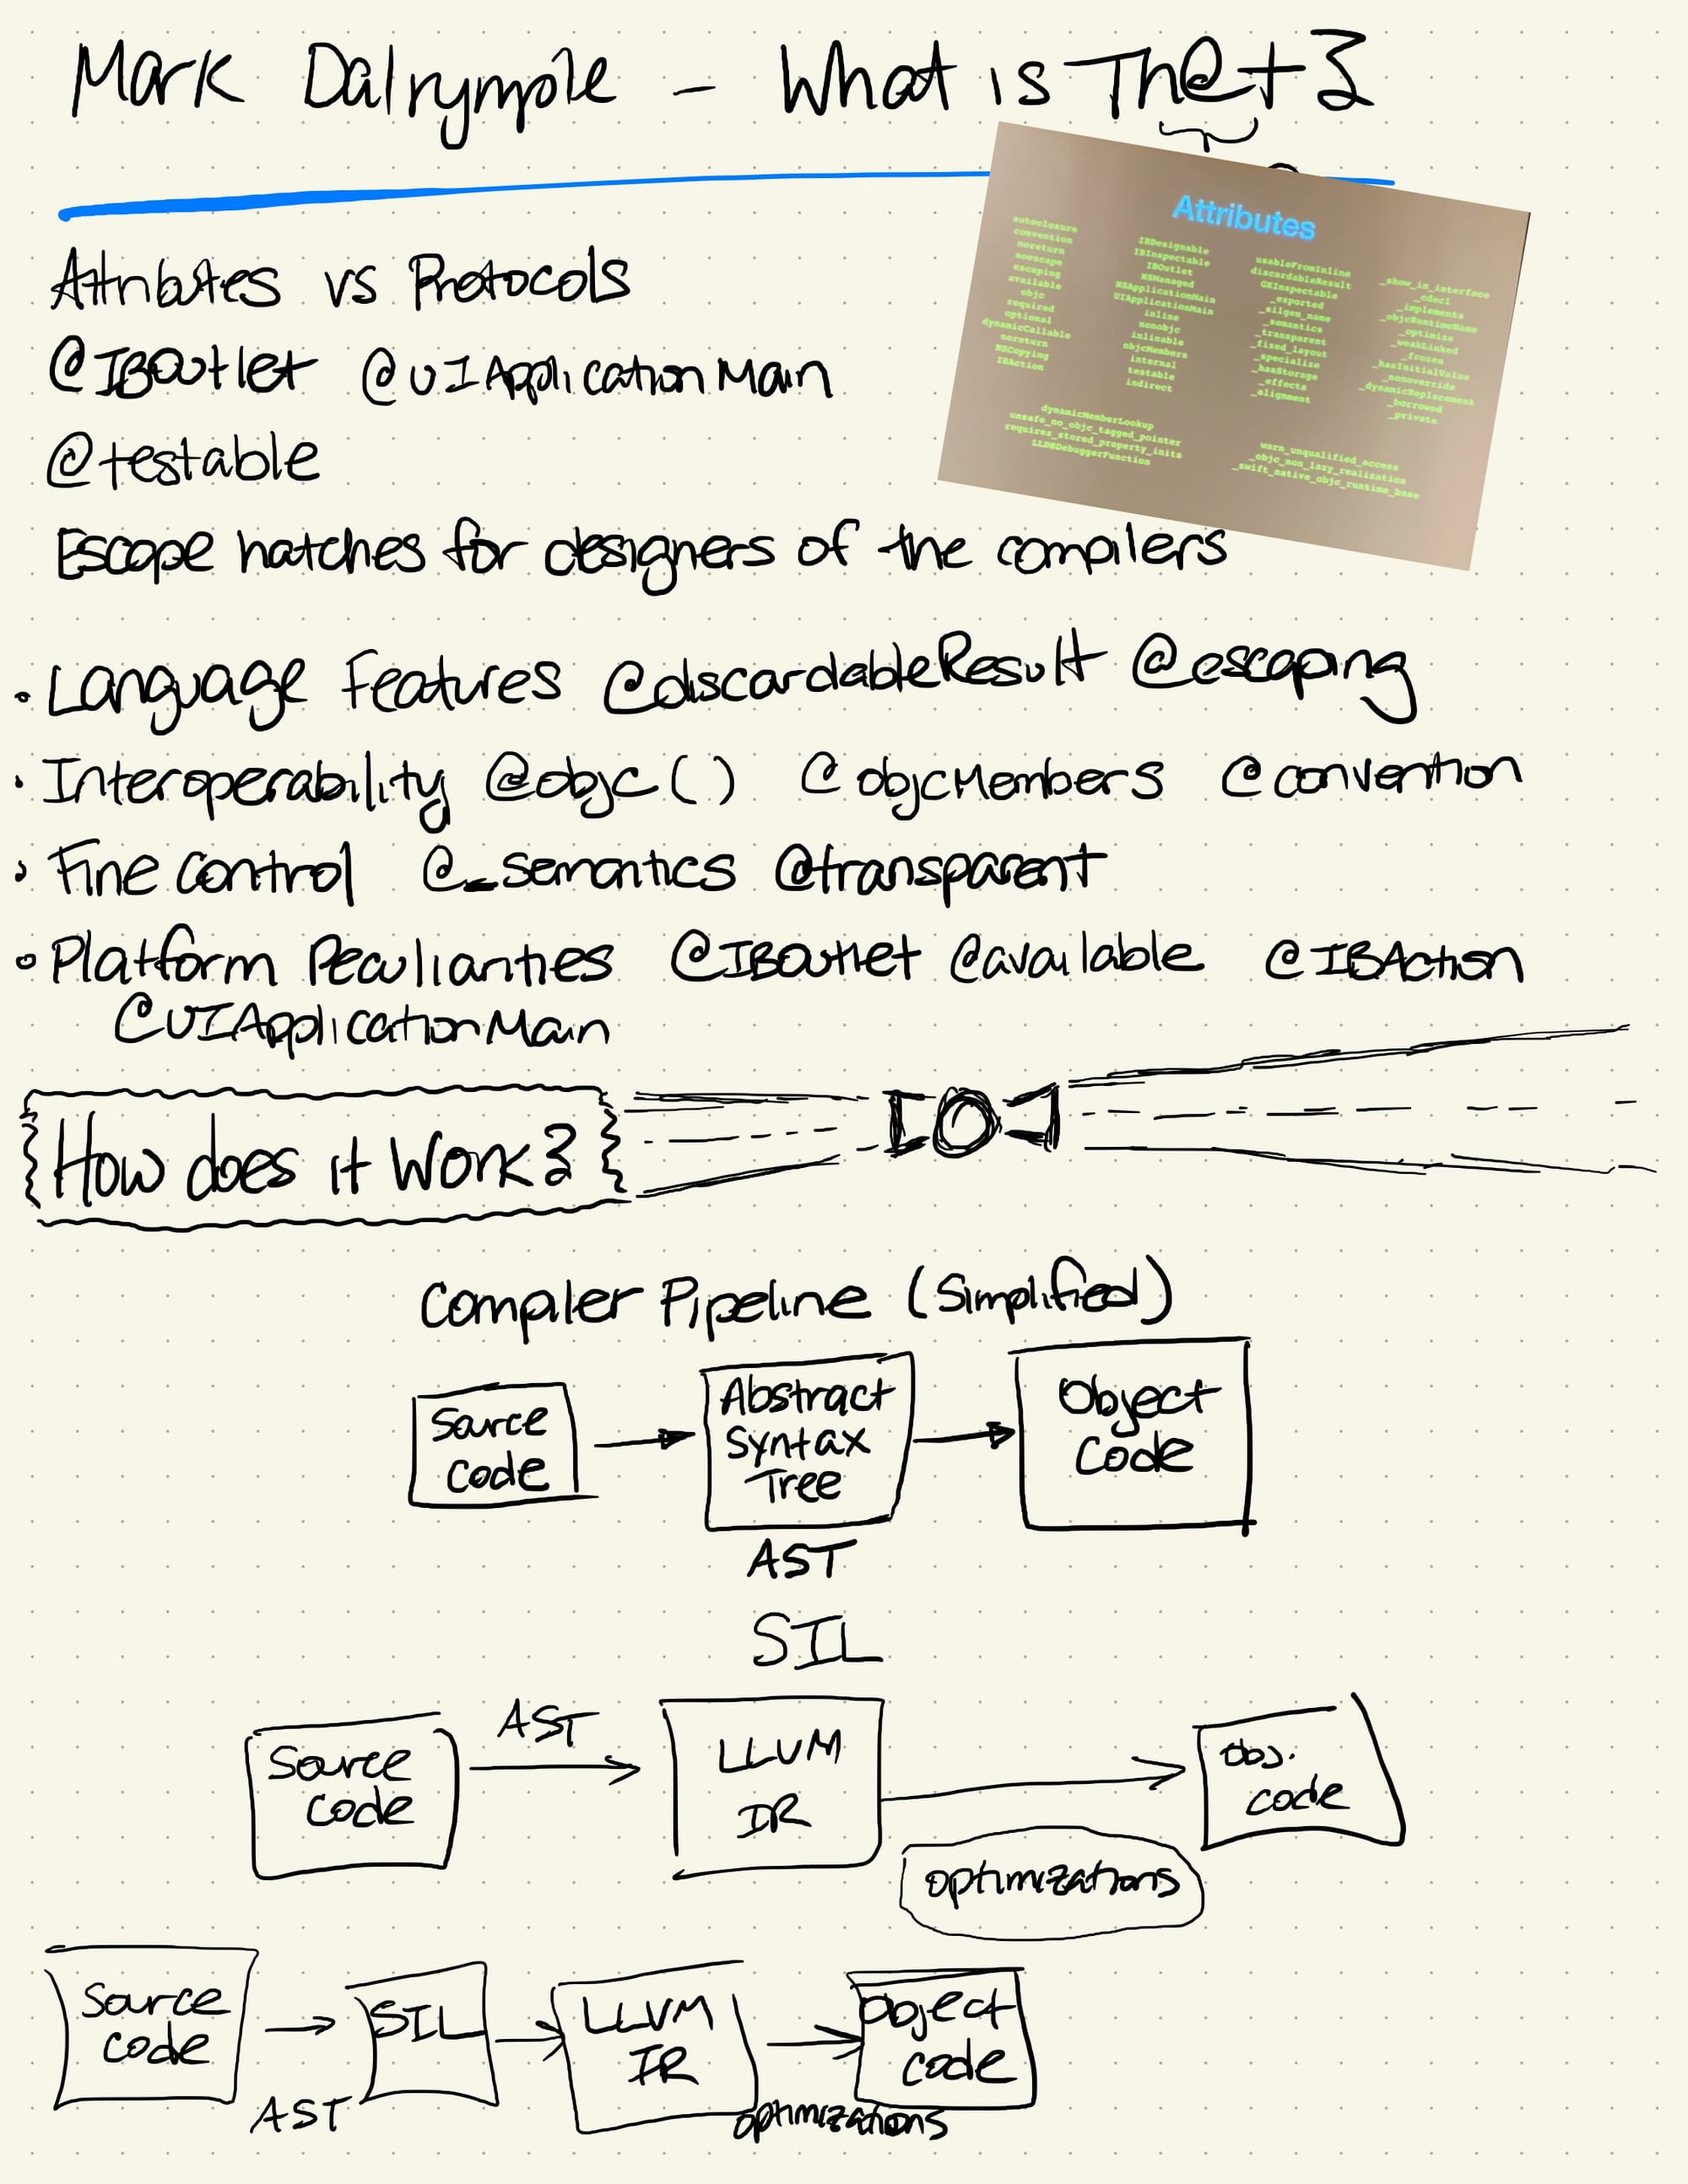 Mark Dalrymple - What is Th@t?
Attributes
autoclosure
convention
noreturn
noescape
escaping
available
objc
required
optional
dynamicCallable
noreturn
NSCopying
IBAction
IBDesignable
IBInspectable
IBOutlet
NSManaged
NSApplicationMain
UIApplicationMain
inline
nonobjc
inlinable
objcMembers
internal
testable
indirect
usableFromInline
discardableResult
GKInspectable
_exported
_silgen_name
_semantics
_transparent
_fixed_layout
_specialize
_hasStorage
_effects
_alignment
_show_in_interface
_cdecl
_implements
_objcRuntimeName
_optimize
_weakLinked
_frozen
_hasInitialValue
_nonoverride
_dynamicReplacement
_borrowed
_private
dynamicMemberLookup
unsafe_no_objc_tagged_pointer
requires_stored_property_inits
LLDBDebuggerFunction
warn_unqualified_access
_objc_non_lazy_realization
_swift_native_objc_runtime_base
Attributes vs Protocols
@IBOutlet @UIApplicationMain
@testable
Escape hatches for designers of the compilers
• Language Features @discardableResult @escaping
• Interoperability @objc() @objcMembers @convention
• Fine control @_semantics @transparent
• Platform Peculiarities @IBOutlet @available @IBAction
@UIApplicationMain
How does it work?
Compiler Pipeline (Simplified)
Source
code
Abstract
Syntax
Tree
Object
Code
AST
SIL
Source
code
AST
LLVM
IR
optimizations
obj.
code
Source
code
AST
SIL
LLVM
IR
optimizations
object
code